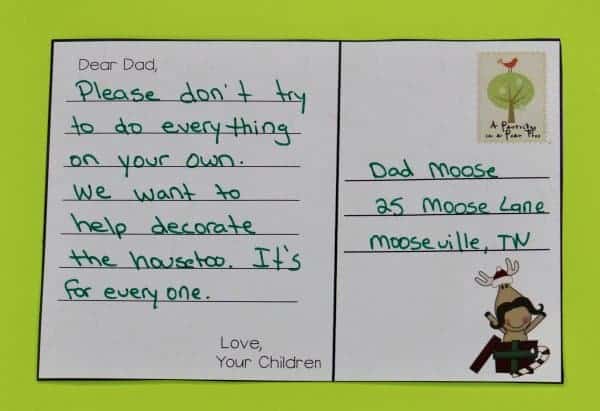 Dear Dad,
Please don't try
to do everything
on your own.
We want to
help decorate
the housetoo. It's
for everyone.
Love,
Your Children
A Partridge
in a Pear Tree
Dad Moose
25 Moose Lane
Mooseville, TN